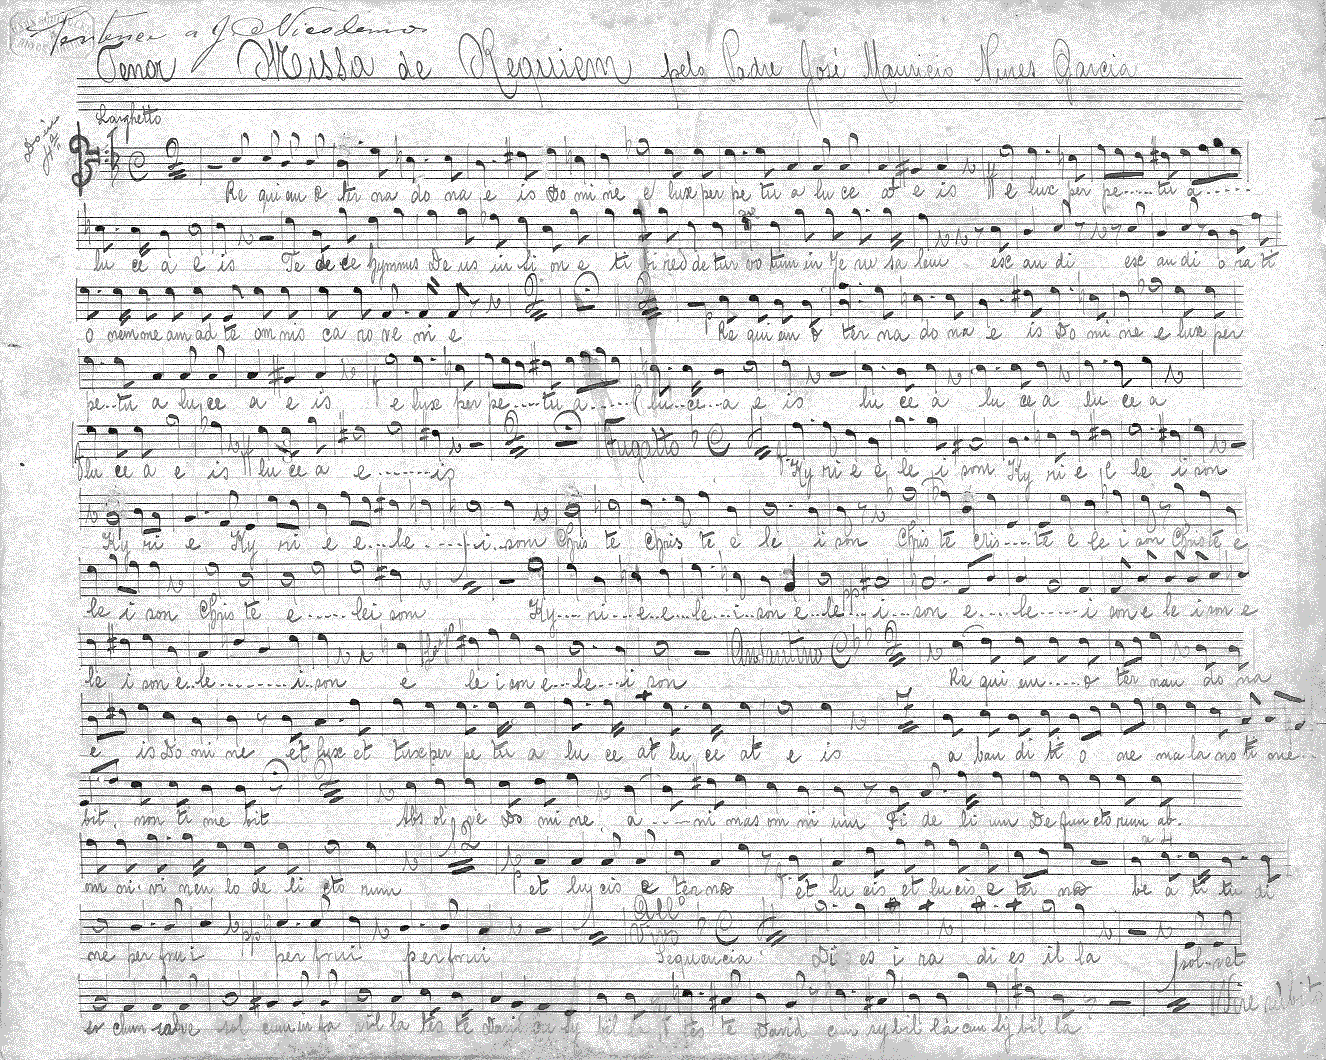 Pertence a J Nicodemos
Tenor Missa de Requiem pelo Padre José Mauricio Nunes Garcia
Larghetto
Re qui em e ter na do na e is Do mi ne e lux per pe tu a lu ce at e is ff e lux per pe......tu a......
lu ce a e is Te de ce hymnus De us in Si on e ti bi red de tur vo tum in Je ru sa lem ex au di ex au di o ra ti
o nem me am ad te om nis ca ro ve ni e p Re qui em e ter na do na e is Do mi ne e lux per
pe..tu a lu ce a e is f e lux per pe....tu a...... lu..ce..a e is lu ce a lu ce a lu ce a
lu ce a e is ff lu ce a e.......is Fugatto Ky ri e e le i son Ky ri e e le i son
Ky ri e Ky ri e e...le.......i..son Chris te Chris te e le i son Chris te Cris....te e le i son Chris te e
le i son Chris te e......lei son Ky....ri..e..e..le..i..son e..le pp i...son e....le......i son e le i son e
le i son e..le..........i..son e le i son e..le...i son Andantino Re qui em.....e ter nam do na
e is Do mi ne et lux et lux per pe tu a lu ce at lu ce at e is a bau di ti o ne ma la no ti me..
bit. non ti me bit Abs ol ve Do mi ne a....ni mas om ni um Fi de li um De func to rum ab.
om ni vi neu lo de li cto rum f et lu cis e ter na f et lu cis et lu cis e ter na be a ti tu di
ne per frui pp per frui per frui All.º Vivo Sequencia Di es i ra di es il la sol-vet
se clum salve sol clum in fa vil la tes te David cu sy bil la tes te David cum sy bil la cum sy bil la